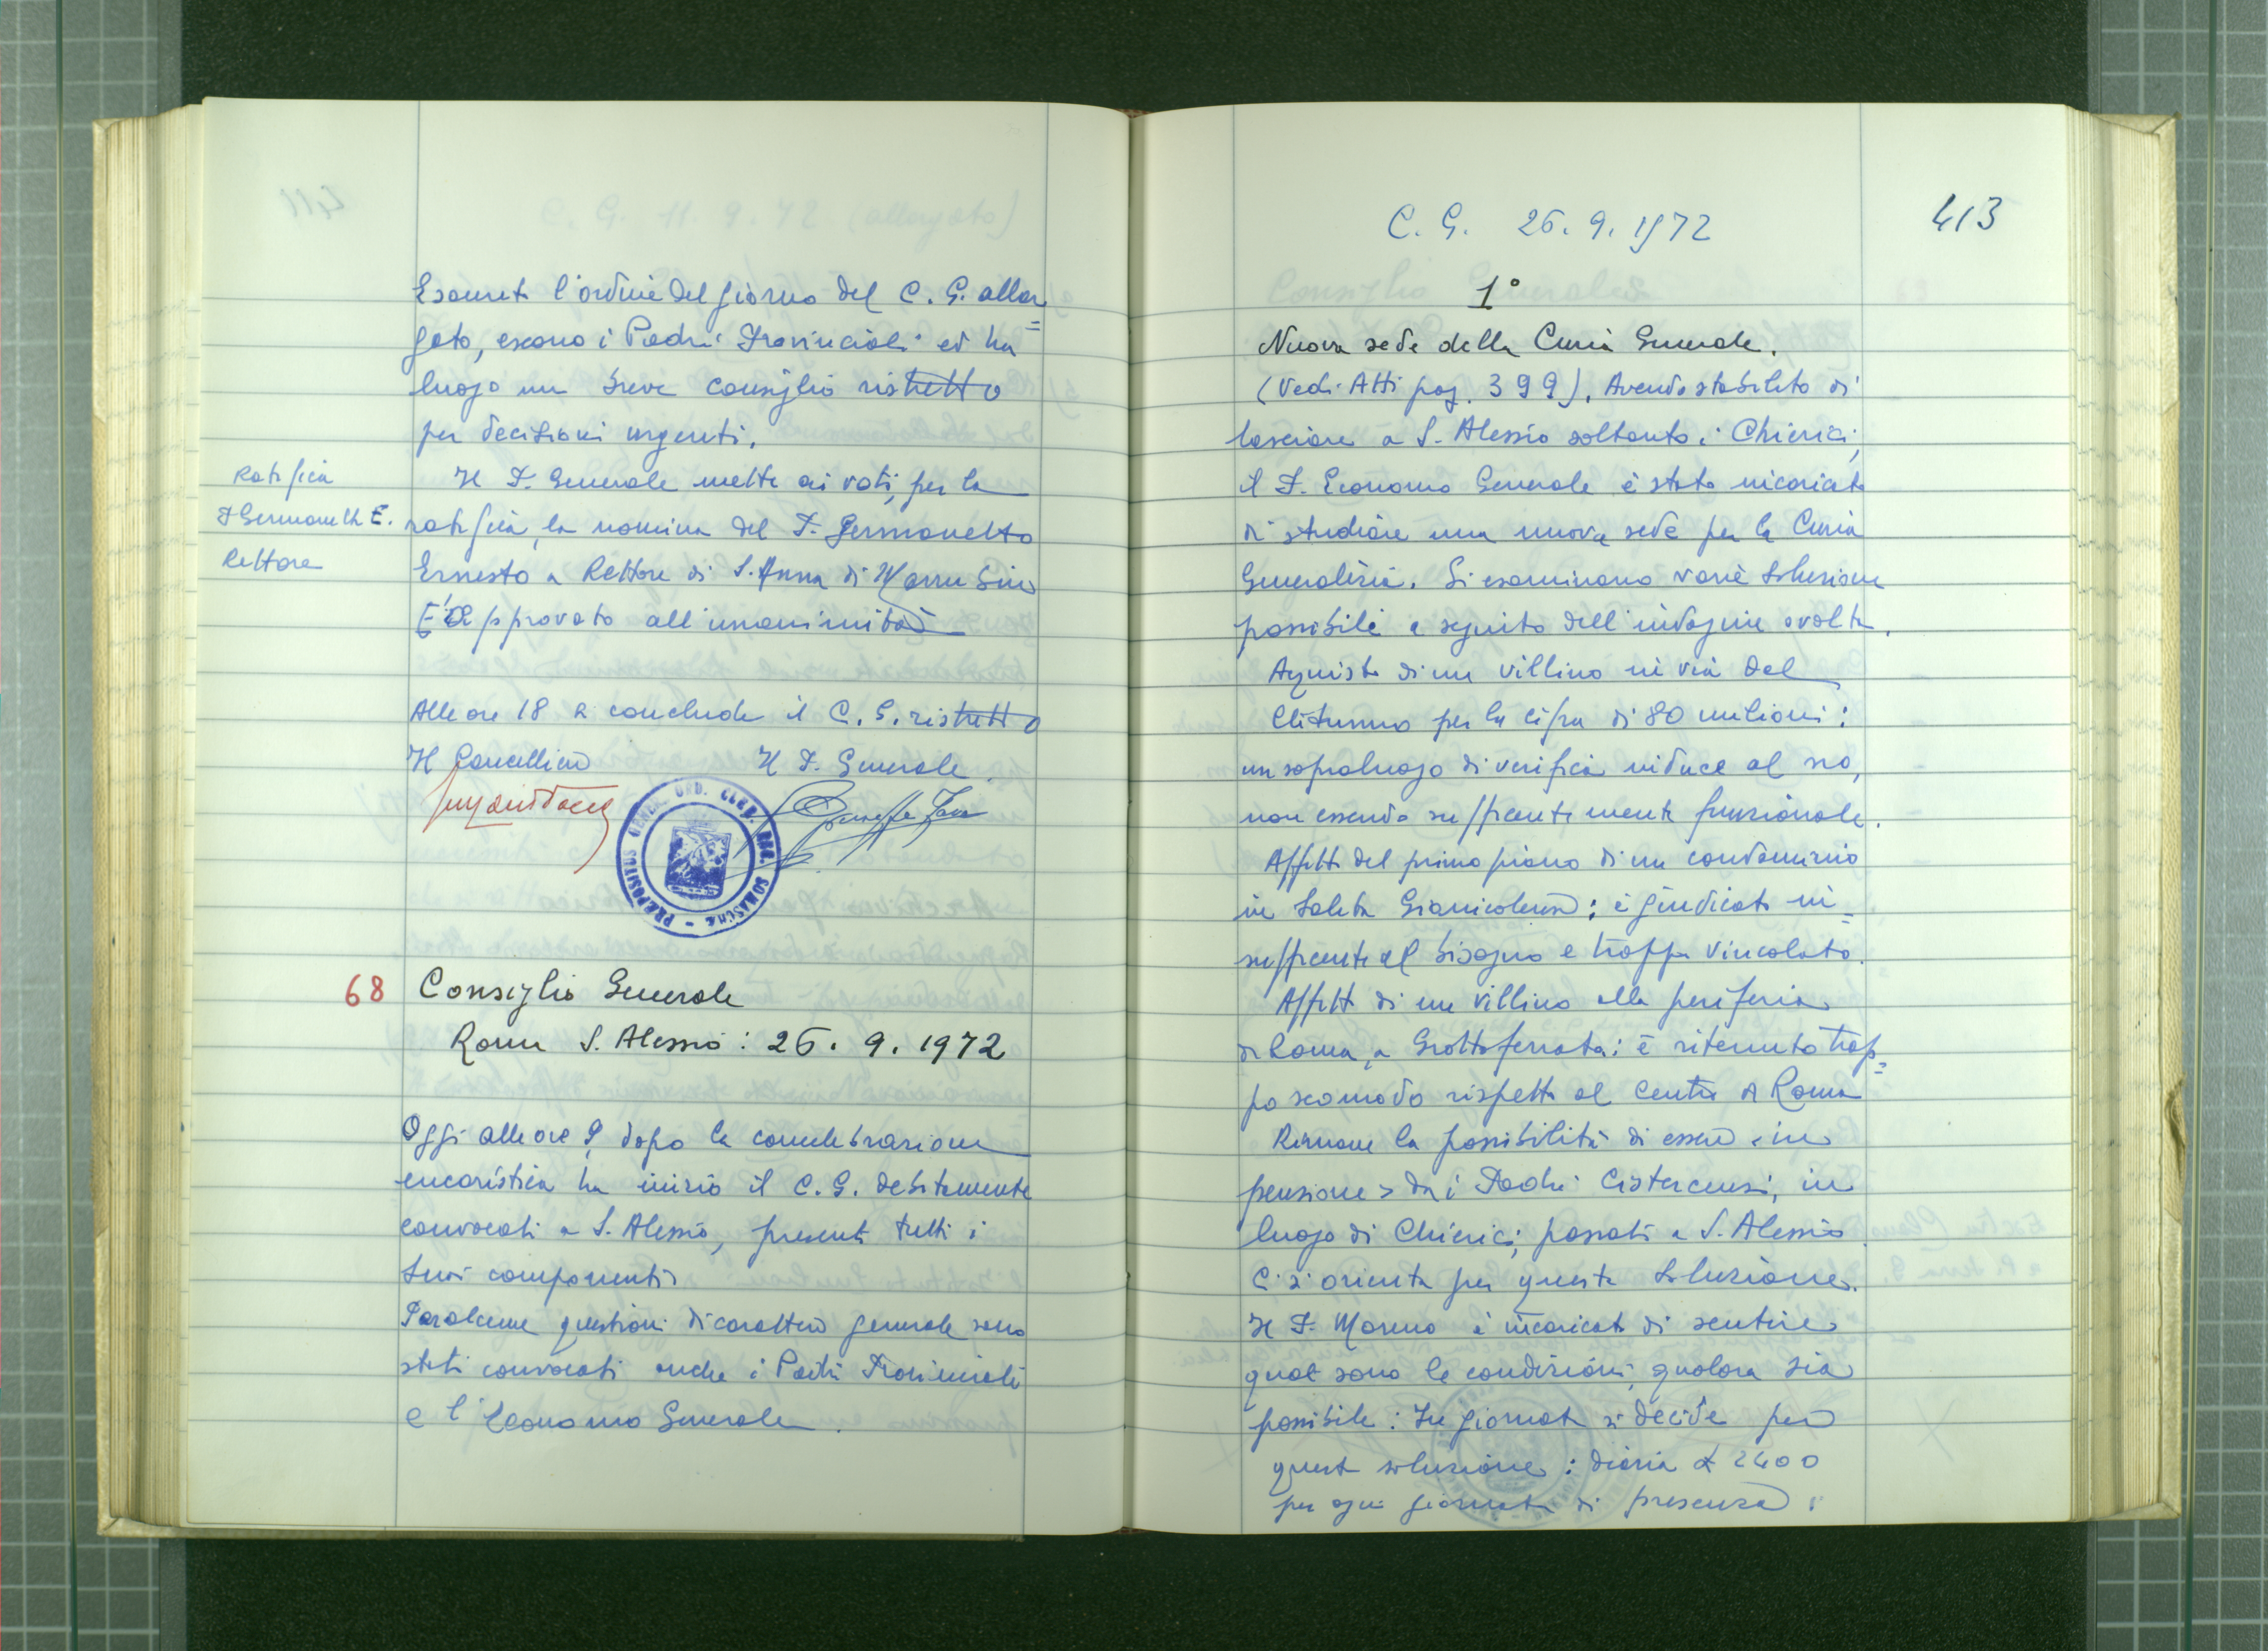 Esaurito l'ordine del giorno del C. G. allar=
gato, escono i Padri Provinciali ed ha
luogo un breve consiglio ristretto
per decisioni urgenti.
Ratifica
P Germanetto E.
Rettore
Il P. Generale mette ai voti, per la
ratifica, la nomina del P. Germanetto
Ernesto a Rettore di S. Anna di
E' approvato all'unanimità
Alle ore 18 si conclude il C. G. ristretto
Il Cancelliere Il P. Generale.
PRÆPOSITUS GENER. ORD. CLER. REG. SOMASCHÆ
68 Consiglio Generale
Roma S. Alessio: 26. 9. 1972
Oggi alle ore 9, dopo la concelebrazione
eucaristica ha inizio il C. G. debitamente
convocati a S. Alessio, presenti tutti i
suoi componenti
Per alcune questioni di carattere generale sono
stati convocati anche i Padri Provinciali
e l'Economo Generale.
C. G. 26. 9. 1972
413
1°
Nuova sede della Curia Generale.
(Vedi Atti pag. 399). Avendo stabilito di
lasciare a S. Alessio soltanto i Chierici,
il P. Economo Generale è stato incaricato
di studiare una nuova sede per la Curia
Generalizia. Si esaminano varie soluzione
possibile a seguito dell'indagine svolta.
Aquisto di un villino in via del
Clitunno per la cifra di 80 milioni:
un sopraluogo di verifica induce al no,
non essendo sufficientemente funzionale.
Affitto del primo piano di un condominio
in Salita Gianicolense: è giudicato in=
sufficiente al bisogno e troppo vincolato.
Affitto di un villino alla periferia
di Roma, a Grottaferrata: è ritenuto trop=
po scomodo rispetto al centro di Roma
Rimane la possibilità di essere < in
pensione > dai Padri Cistercensi, in
luogo di Chierici, passati a S. Alessio.
Ci si orienta per questa soluzione.
Il P. Moreno è incaricato di sentire
quali sono le condizioni, qualora sia
possibile: In giornata si decide per
questa soluzione: diaria £ 2400
per ogni giornata di presenza.